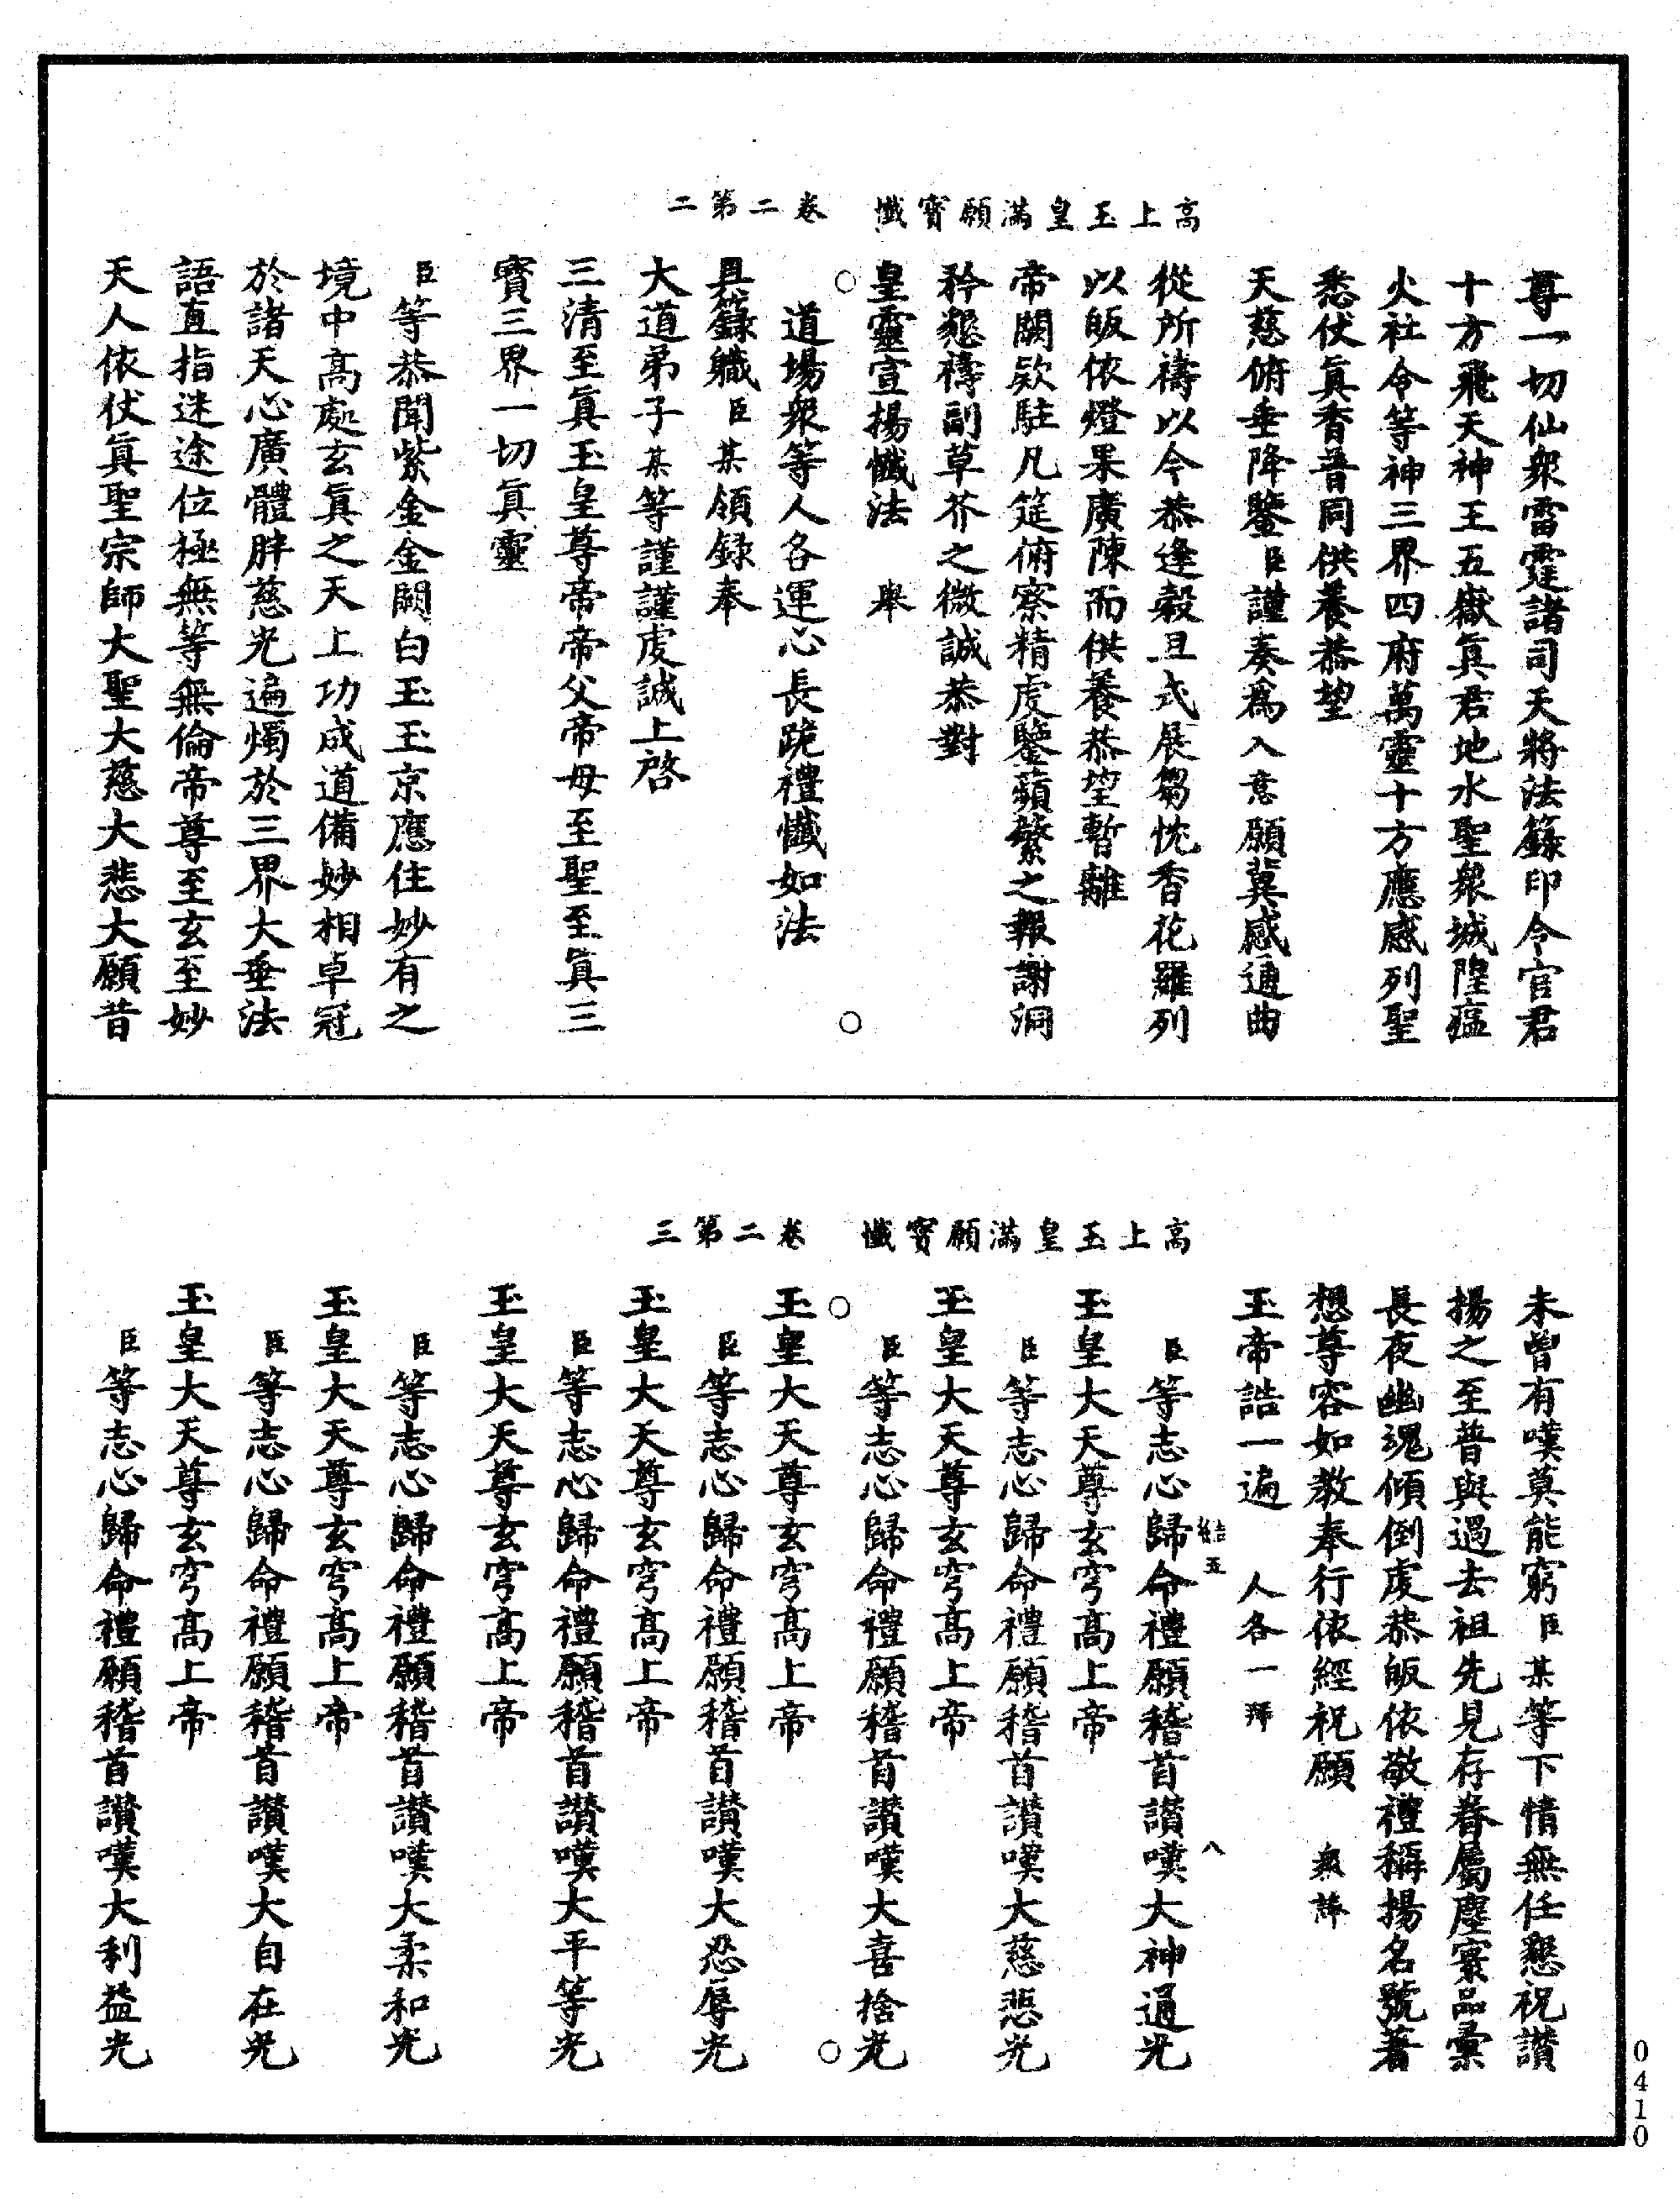 高上玉皇滿願寶懺　卷二第二
尊一切仙衆雷霆諸司天將法籙印令官君
十方飛天神王五嶽眞君地水聖衆城隍瘟
火社令等神三界四府萬靈十方應感列聖
悉仗眞香普同供養恭望
天慈俯垂降鑒臣謹奏爲入意願冀感通曲
從所禱以今恭逢穀旦式展芻忱香花羅列
以皈依燈果廣陳而供養恭望暫離
帝闕欻駐凡筵俯察精虔鑒蘋蘩之報謝洞
矜懇禱副草芥之微誠恭對
皇靈宣揚懺法　舉
道場衆等人各運心長跪禮懺如法
具籙職臣某領録奉
大道弟子某等謹謹虔誠上啓
三清至眞玉皇尊帝帝父帝母至聖至眞三
寶三界一切眞靈
臣等恭聞紫金金闕白玉玉京應住妙有之
境中高處玄眞之天上功成道備妙相卓冠
於諸天心廣體胖慈光遍燭於三界大垂法
語直指迷途位極無等無倫帝尊至玄至妙
天人依仗眞聖宗師大聖大慈大悲大願昔
高上玉皇滿願寶懺　卷二第三
未曾有嘆莫能窮臣某等下情無任懇祝讃
揚之至普與過去祖先見存眷屬塵寰品彙
長夜幽魂傾倒虔恭皈依敬禮稱揚名號著
想尊容如教奉行依經祝願　衆誦
玉帝誥一遍　人各一拜
結五　八
臣等志心歸命禮願稽首讃嘆大神通光
玉皇大天尊玄穹高上帝
臣等志心歸命禮願稽首讃嘆大慈悲光
玉皇大天尊玄穹高上帝
臣等志心歸命禮願稽首讃嘆大喜捨光
玉皇大天尊玄穹高上帝
臣等志心歸命禮願稽首讃嘆大忍辱光
玉皇大天尊玄穹高上帝
臣等志心歸命禮願稽首讃嘆大平等光
玉皇大天尊玄穹高上帝
臣等志心歸命禮願稽首讃嘆大柔和光
玉皇大天尊玄穹高上帝
臣等志心歸命禮願稽首讃嘆大自在光
玉皇大天尊玄穹高上帝
臣等志心歸命禮願稽首讃嘆大利益光
0410